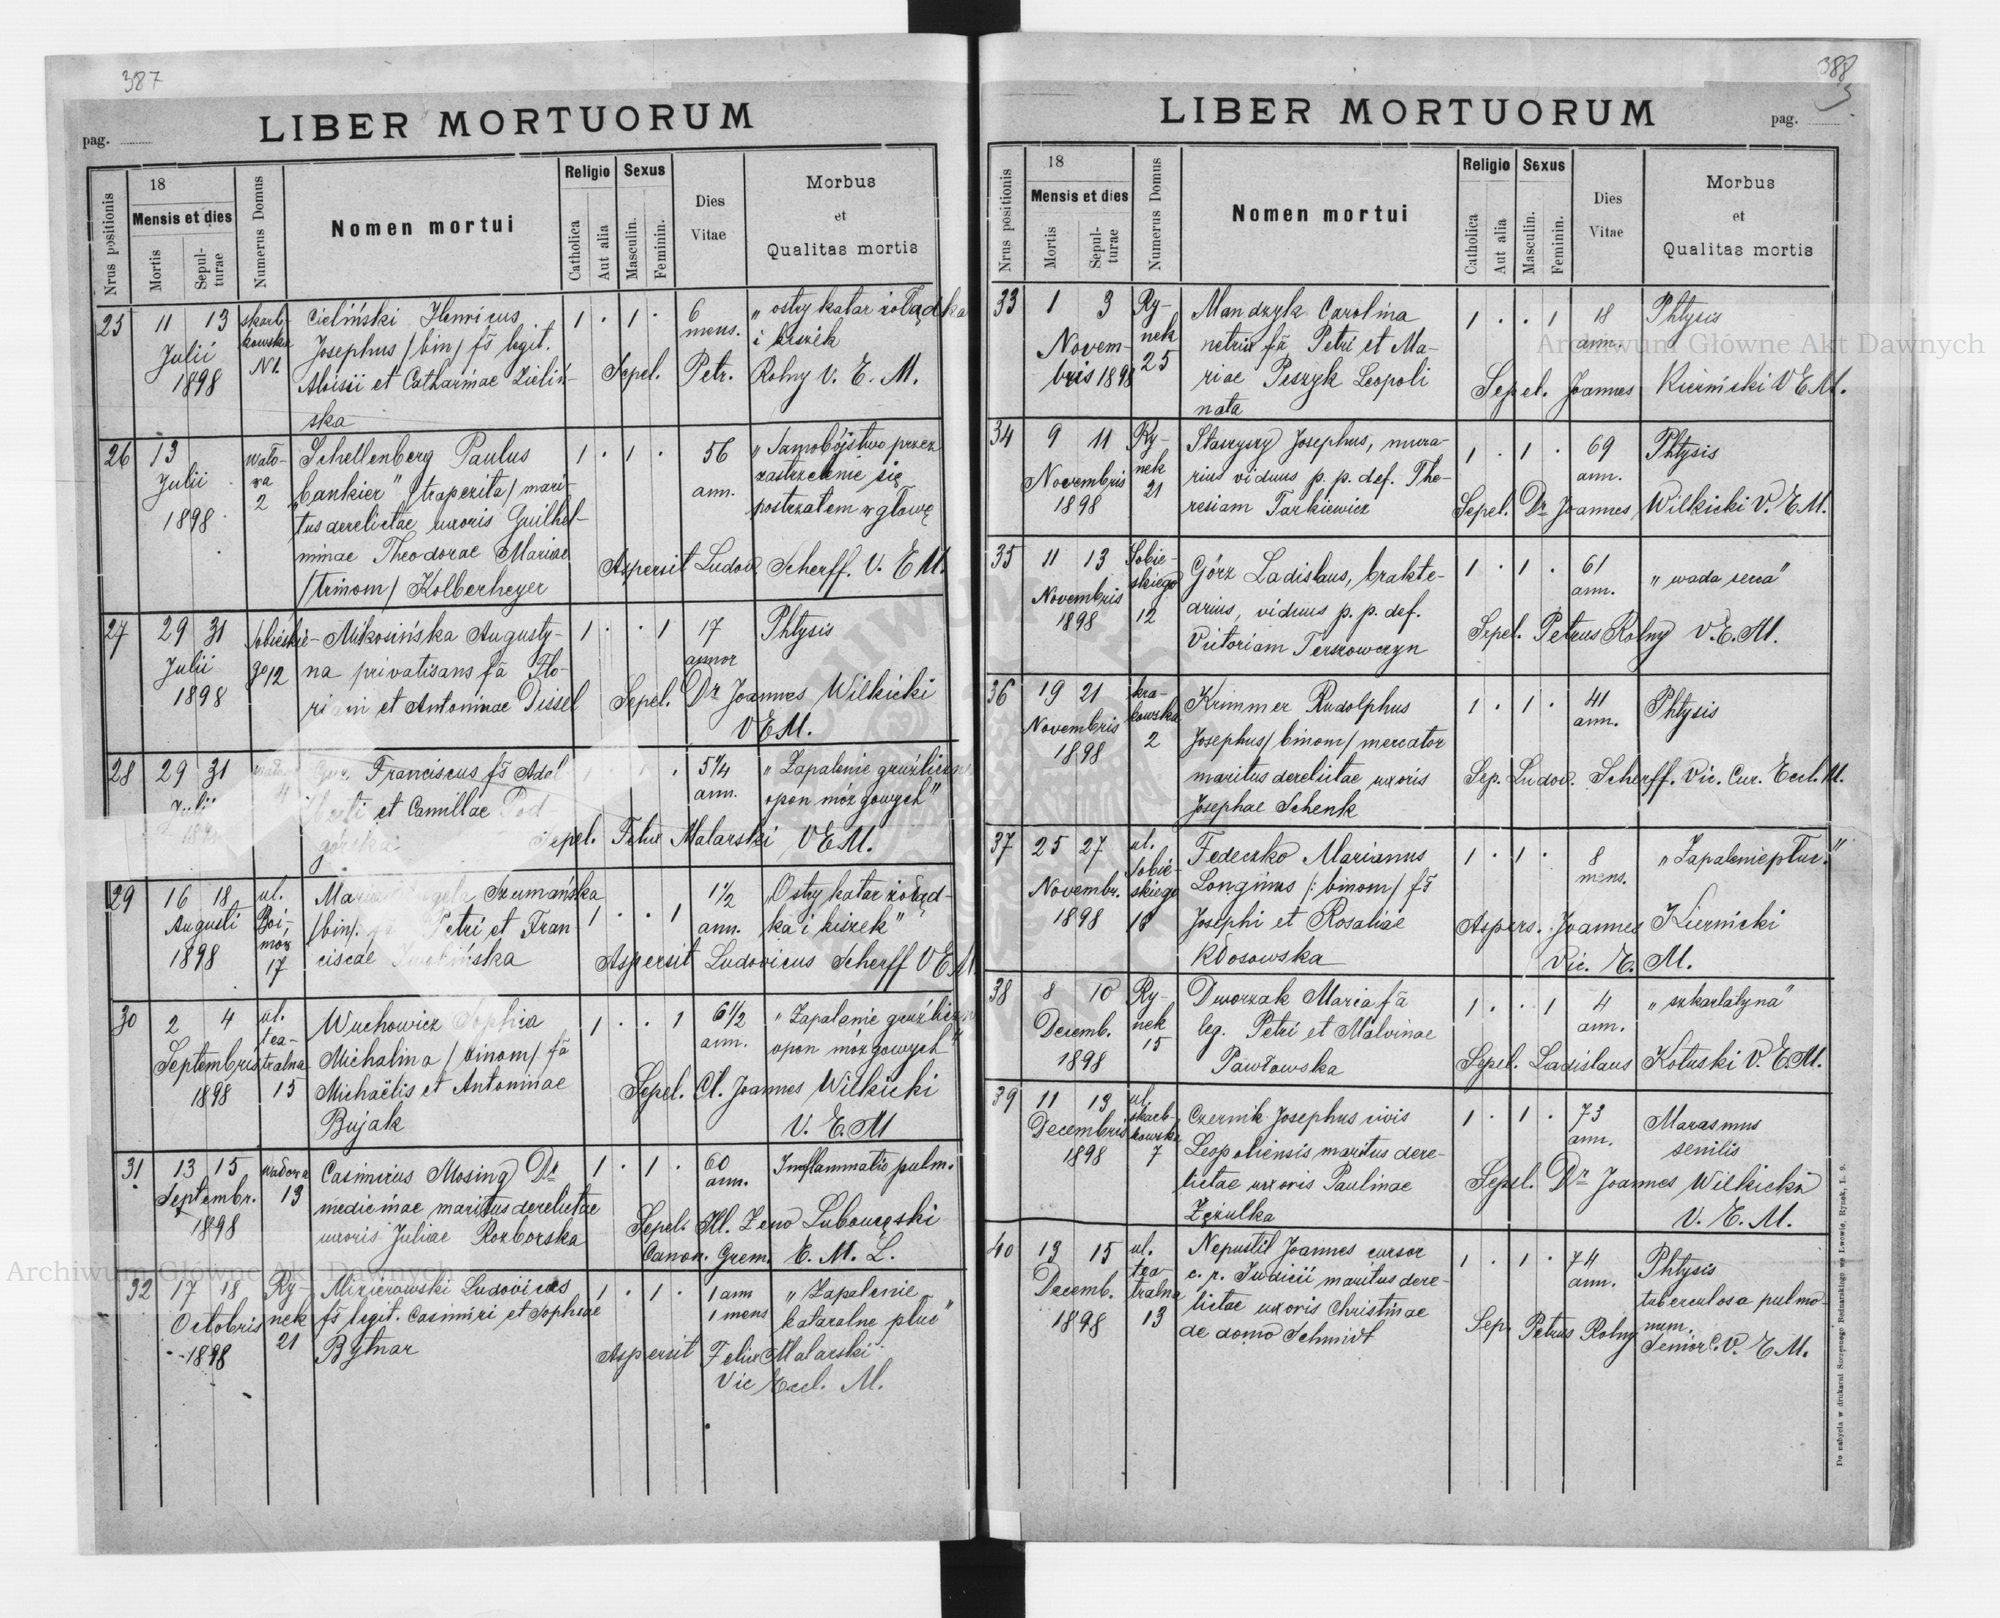 387
LIBER MORTUORUM
pag.
Nrus positionis
18
Mensis et dies
Mortis
Sepul-
turae
Numerus Domus
Nomen mortui
Religio
Catholica
Aut alia
Sexus
Masculin.
Feminin.
Dies
Vitae
Morbus
et
Qualitas mortis
25 11 13 skarb- Cieliński Henricus 1 . 1 . 6 „ostry katar żołądka
kowska Josephus /bin/ fs̄ legit. mens. i kiszek
Julii N1. Aloisii et Catharinae Zieliń- Sepel. Petr. Rolny V. E. M.
1898 ska
26 13 wało- Schellenberg Paulus 1 . 1 . 56 „Samobójstwo przez
Julii wa „bankier" /trapezita/ mari- ann. zastrzelenie się
1898 2 tus derelictae uxoris Guilhel- postrzałem w głowę
minae Theodorae Mariae Aspersit Ludov. Scherff. V. E M.
/trinom/ Kolberheyer
27 29 31 Sobieskie- Mikosińska Augusty- 1 . . 1 17 Phtysis
Julii go 12 na privatisans fā Flo- annor
1898 riani et Antoninae Dissel Sepel. Dr Joannes Wilkicki
V E M.
28 29 31 Franciscus fs̄ Adal 1 . 1 . 5¼ „Zapalenie gruźliczne
Julii berti et Camillae Pod ann. opon mózgowych"
górska Sepel. Felix Malarski V E M.
29 16 18 ul. Maria Angela Szumańska 1½ „Ostry katar żołąd-
Augusti Boi- /bin/. fā Petri et Fran 1 . . 1 ann. ka i kiszek"
1898 mów ciscae Aspersit Ludovicus Scherff V E M
17
30 2 4 ul. Wuchowicz Sophia 1 . . 1 6½ „Zapalenie gruźliczne
tea- Michalina /binom/ fā ann. opon mózgowych"
Septembris tralna Michaëlis et Antoninae Sepel. Cl. Joannes Wilkicki
1898 15 Bujak V. E. M
31 13 15 wałowa Casimirus Mosing Dr 1 . 1 . 60 Inflammatio pulm.
Septembr. 13 medicinae maritus derelictae ann.
1898 uxoris Juliae Rozborska Sepel. Ill. Zeno Lubomęski
Canon. Grem. E. M. L.
32 17 18 Ry- Mizierowski Ludovicus 1 . 1 . 1 ann „Zapalenie
Octobris nek fs̄ legit. Casimiri et Sophiae 1 mens kataralne płuc"
1898 21 Bytnar Aspersit Felix Malarski
Vic Eccl. M.
388
LIBER MORTUORUM
pag.
Nrus positionis
18
Mensis et dies
Mortis
Sepul-
turae
Numerus Domus
Nomen mortui
Religio
Catholica
Aut alia
Sexus
Masculin.
Feminin.
Dies
Vitae
Morbus
et
Qualitas mortis
33 1 3 Ry- Mandzyk Carolina 1 . . 1 18 Phtysis
Novem- nek netrix fā Petri et Ma- ann.
bris 1898 25 riae Peszyk Leopoli Sepel. Joannes Kiernicki V E M.
nata
34 9 11 Ry- Starzyszy Josephus, mura- 1 . 1 . 69 Phtysis
Novembris nek rius viduus p. p. def. The- ann.
1898 21 resiam Tarkiewicz Sepel. Dr Joannes Wilkicki V. E. M.
35 11 13 Sobie- Görz Ladislaus, brakte- 1 . 1 . 61 „wada serca"
Novembris skiego arius, viduus p. p. def. ann.
1898 12 Victoriam Terszowczyn Sepel. Petrus Rolny V. E. M.
36 19 21 kra- Krimmer Rudolphus 1 . 1 . 41 Phtysis
Novembris kowska Josephus /binom/ mercator ann.
1898 2 maritus derelictae uxoris Sep. Ludov. Scherff. Vic. Cur. Eccl. M.
Josephae Schenk
37 25 27 ul. Fedeczko Marianus 1 . 1 . 8 „Zapalenie płuc"
Novembr. Sobie- Longinus /: binom/ fs̄ mens.
1898 skiego Josephi et Rosaliae Aspers. Joannes Kiernicki
Kłosowska Vic. E. M.
38 8 10 Ry- Dworzak Maria fā 1 . . 1 4 „szkarlatyna"
Decemb. nek leg. Petri et Malvinae ann.
1898 15 Pawłowska Sepel. Ladislaus Kotuski V. E. M.
39 11 13 ul. Czernik Josephus civis 1 . 1 . 73 Marasmus
Decembris skarb- Leopoliensis maritus dere- ann. senilis
1898 kowska lictae uxoris Paulinae Sepel. Dr Joannes Wilkicki
7 Zęzulka V. E. M.
40 13 15 ul. Nepustil Joannes cursor 1 . 1 . 74 Phtysis
Decemb. tea c. r. Judicii maritus dere- ann. tuberculosa pulmo-
1898 tralna lictae uxoris Christinae num.
13 de domo Schmidt Sep. Petrus Rolny Senior V. E M.
Do nabycia w drukarni Szczęsnego Bednarskiego we Lwowie, Rynek, L. 9.
Archiwum Główne Akt Dawnych
Archiwum Główne Akt Dawnych